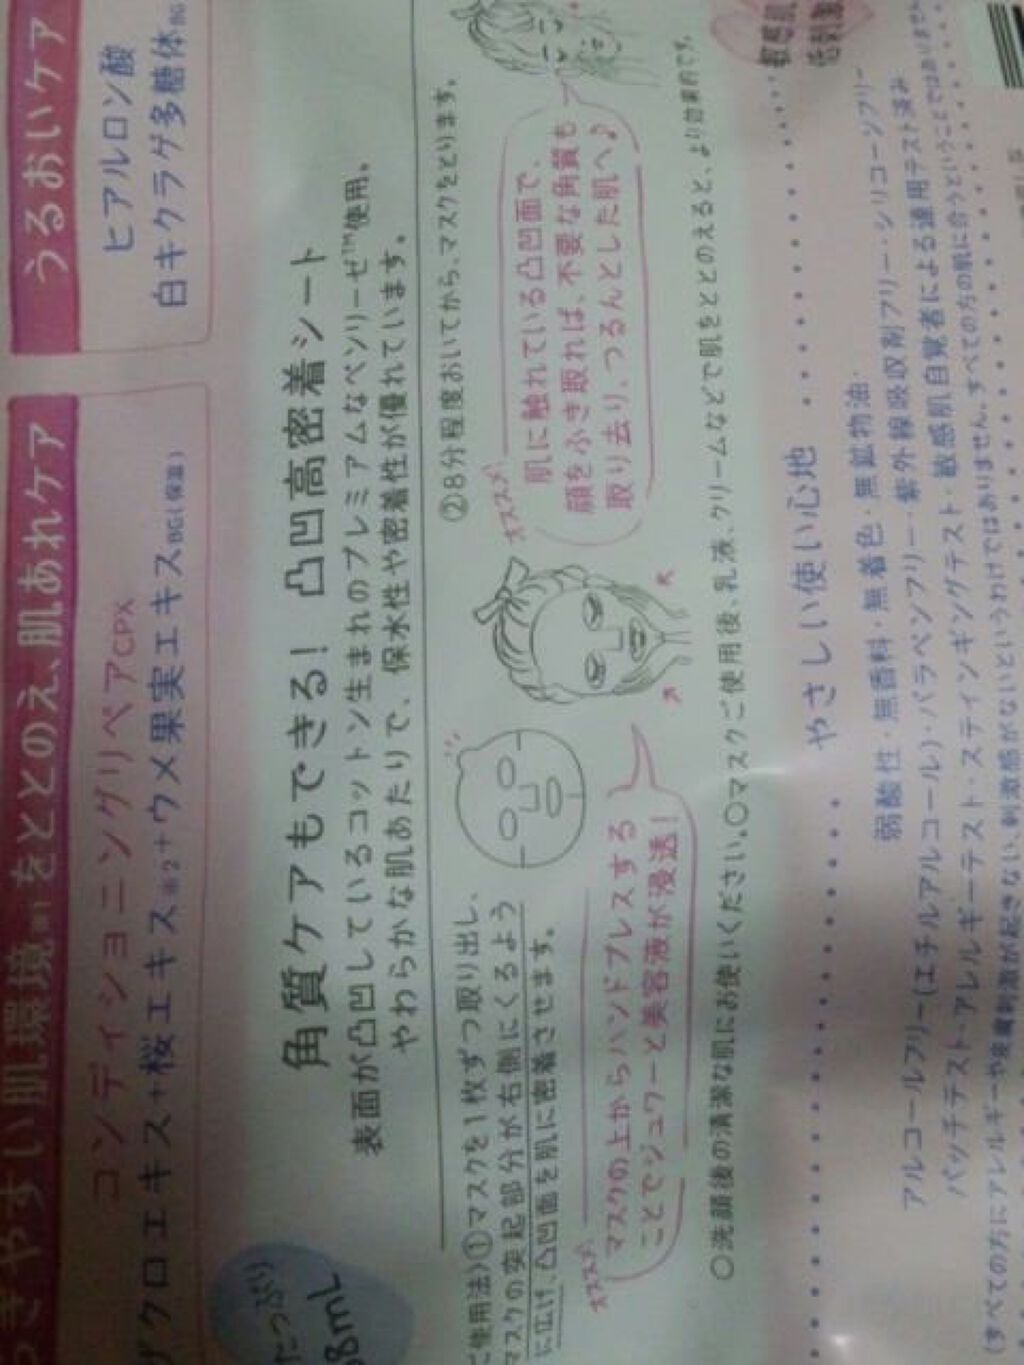 きやすい肌環境※1をととのえ、肌あれケア
コンディショニングリペアCPX
ザクロエキス+桜エキス※2+ウメ果実エキスBG(保湿)
うるおいケア
ヒアルロン酸
白キクラゲ多糖体BG
たっぷり
8mL
角質ケアもできる! 凸凹高密着シート
表面が凸凹しているコットン生まれのプレミアムなベンリーゼ™使用。
やわらかな肌あたりで、保水性や密着性が優れています。
ご使用法)①マスクを1枚ずつ取り出し、
マスクの突起部分が右側にくるよう
に広げ、凸凹面を肌に密着させます。
オススメ!
マスクの上からハンドプレスする
ことでジュワーと美容液が浸透!
②8分程度おいてから、マスクをとります。
オススメ!
肌に触れている凸凹面で、
顔をふき取れば、不要な角質も
取り去り、つるんとした肌へ♪
○洗顔後の清潔な肌にお使いください。○マスクご使用後、乳液、クリームなどで肌をととのえると、より効果的です。
やさしい使い心地
敏感肌
低刺激
弱酸性・無香料・無着色・無鉱物油・
アルコールフリー(エチルアルコール)・パラベンフリー・紫外線吸収剤フリー・シリコーンフリー
パッチテスト・アレルギーテスト・スティンギングテスト・敏感肌自覚者による連用テスト済み
(すべての方にアレルギーや皮膚刺激が起きない、刺激感がないというわけではありません。すべての方の肌に合うということではありません